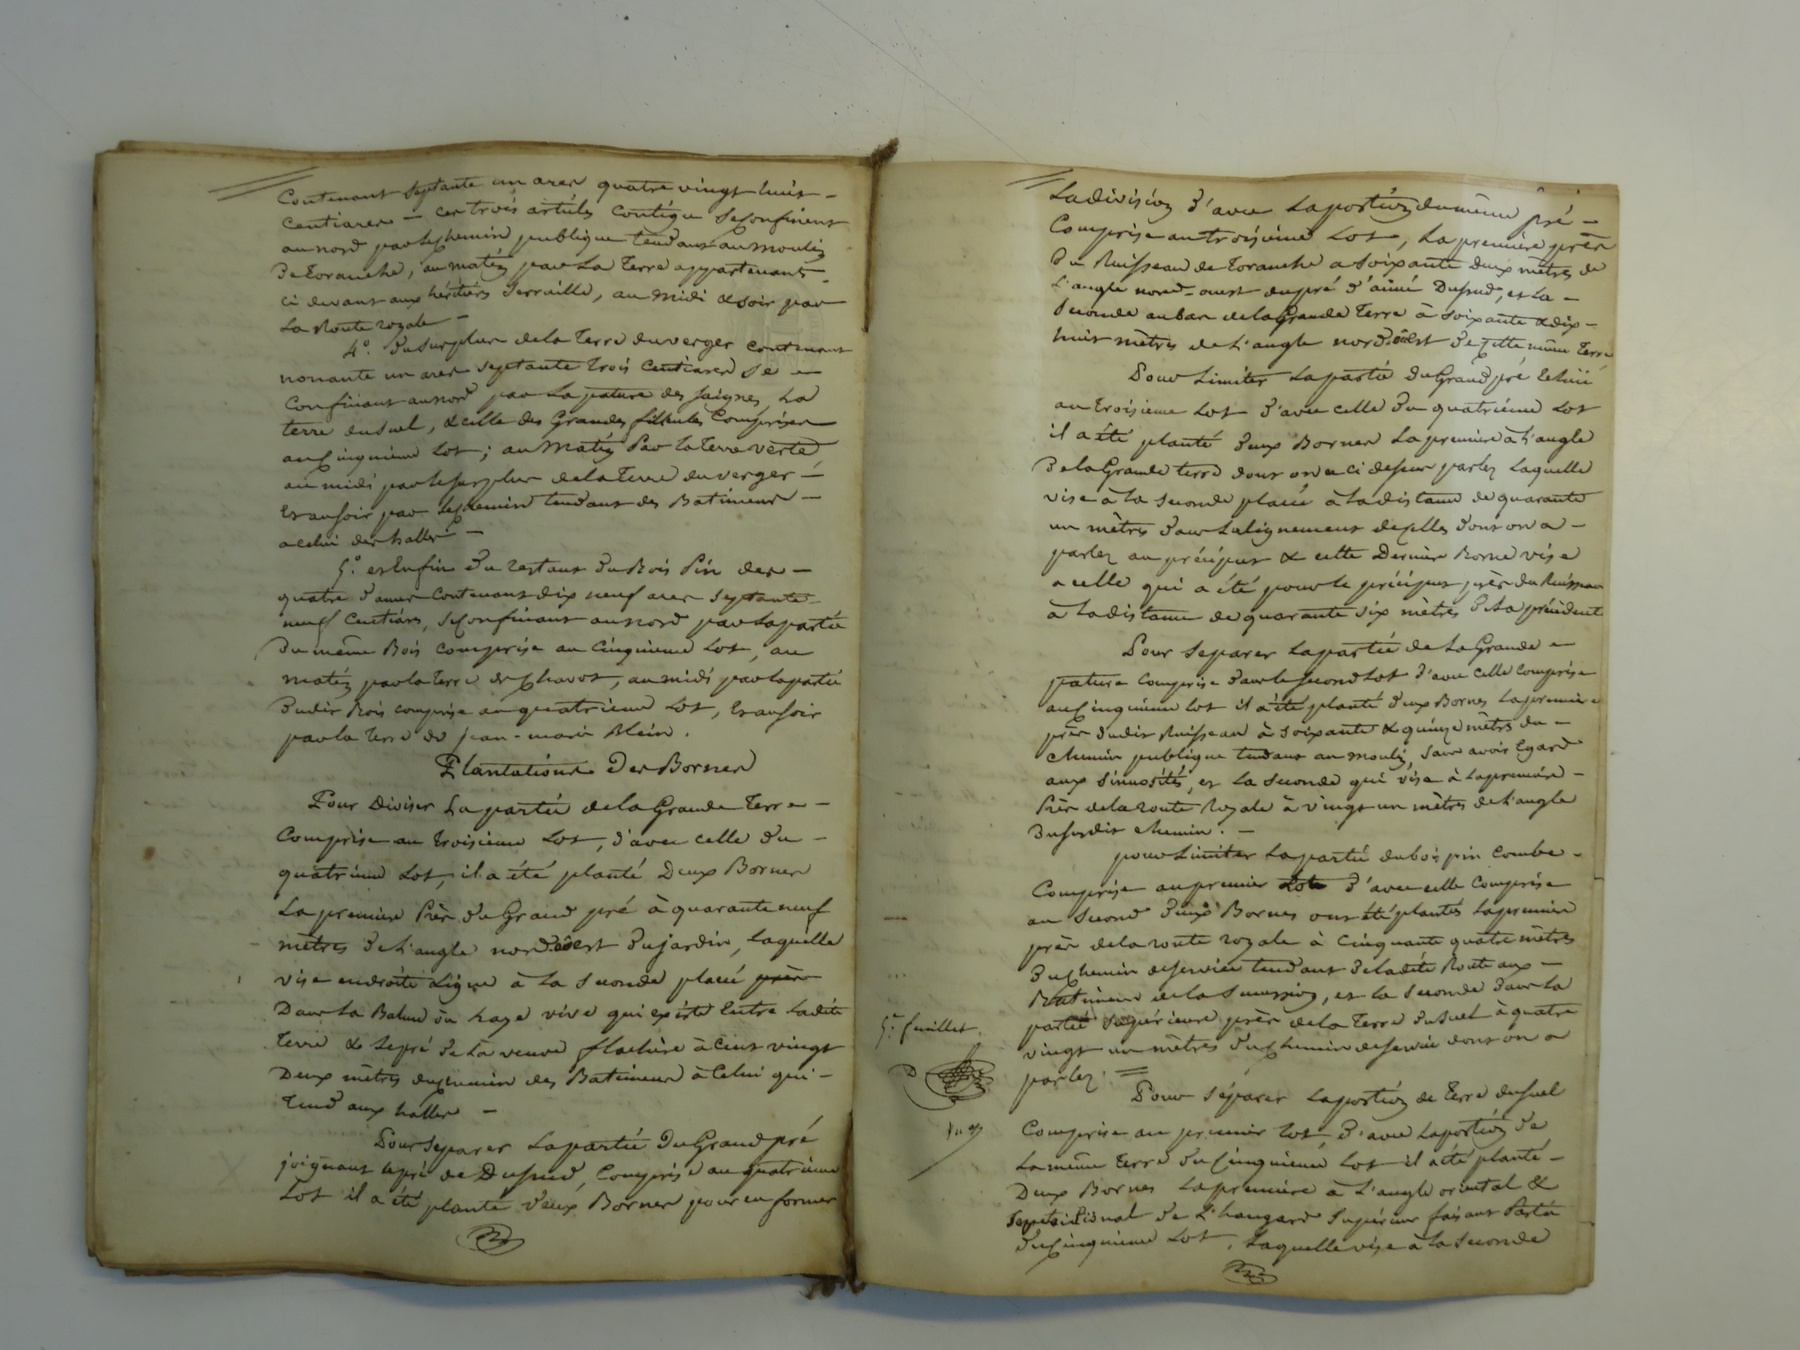 Contenant septante un ares quatre vingt huit -
Centiares - ces trois articles contigu se confinent
au nord par le chemin publique tendant au moulin
de toranche, au matin par la terre appartenant -
ci devant aux héritiers Serraille, au midi & soir par
La Route royale -
4°. du surplus de la terre du verger contenant
nonante un ares septante trois centiares se -
confinant au nord par la pature des saignes, La
terre du suel, & celle des Grandes Comprises
au cinquieme Lot; au matin Par la terre verte
au midi par le surplus de la terre du verger -
Et au soir par le chemin tendant des Batiments -
a celui des halles -
5°. et Enfin du restant du Bois Pin des -
quatre contenant dix neuf ares septante -
neuf Centiares, se confinant au nord par la partie
du même Bois comprise au cinquieme Lot, au
matin par la terre de Chavot, au midi par la partie
dudit Bois comprise au quatrieme Lot, Et au soir
par la terre de jean-marie Blein.
Plantations Des Bornes
Pour Diviser La partie de la Grande terre -
Comprise au troisieme Lot, d'avec celle du -
quatrieme Lot, il a été planté Deux Bornes
La premiere Près du Grand pré à quarante neuf
mètres de L'angle nord ouest du jardin, Laquelle
vise en droite Ligne à La seconde placée près
Dans La Balme ou haye vive qui existe Entre Ladite
terre & Le pré de La veuve flachere à cent vingt
Deux mètres du chemin des Batiments à Celui qui -
tend aux halles -
Pour séparer La partie Du Grand pré
joignant le pré de Dufaud, Comprise au quatrieme
Lot il a été planté deux Bornes pour en former
La division d'avec La portion du même pré -
Comprise au troisième Lot, La premiere près
Du Ruisseau de Toranche a soixante deux mètres de
L'angle nord-ouest du pré d'aimé Dufaud, et La -
seconde au bas de la Grande terre à soixante & dix -
huit mètres de L'angle nord ouest de cette même terre
Pour Limiter La partie du Grand pré
au troisieme Lot d'avec celle du quatrième Lot
il a été planté deux Bornes La premiere à L'angle
de la Grande terre dont on a ci dessus parlez Laquelle
vise à la seconde placée à la distance de quarante
un mètres dans L'alignement de celles dont on a -
parlez au préciput & cette Derniere Borne vise
a celle qui a été pour le préciput près du Ruisseau
à la distance de quarante six mètres de La précédente
Pour séparer La partie de La Grande -
pature Comprise dans le second Lot d'avec celle comprise
au cinquième lot il a été planté deux Bornes La premiere
près dudit Ruisseau à soixante & quinze mètres du -
chemin publique tendant au moulin, sans avoir Egard
aux sinuosités, et La seconde qui vise à La premiere -
Près de la route Royale à vingt un mètres de L'angle
du susdit chemin. -
pour Limiter La partie du bois pin Combe -
Comprise au premier Lot d'avec celle Comprise
au second deux Bornes ont été plantés La premiere
près de la route royale à Cinquante quatre mètres
du chemin de service tendant de ladite Route aux -
Batiments de la succession, et La seconde dans La
partie supérieure près de la terre du suel à quatre
vingt un mètres du chemin de service dont on a
parlez. =
5e. feuillet
Pour séparer La portion de terre du suel
Comprise au premier Lot d'avec La portion de
La même terre du Cinquieme Lot il a été planté -
Deux Bornes La premiere à L'angle oriental &
septentrional de L'hangard supérieur faisant Partie
du Cinquieme Lot, Laquelle vise à la seconde